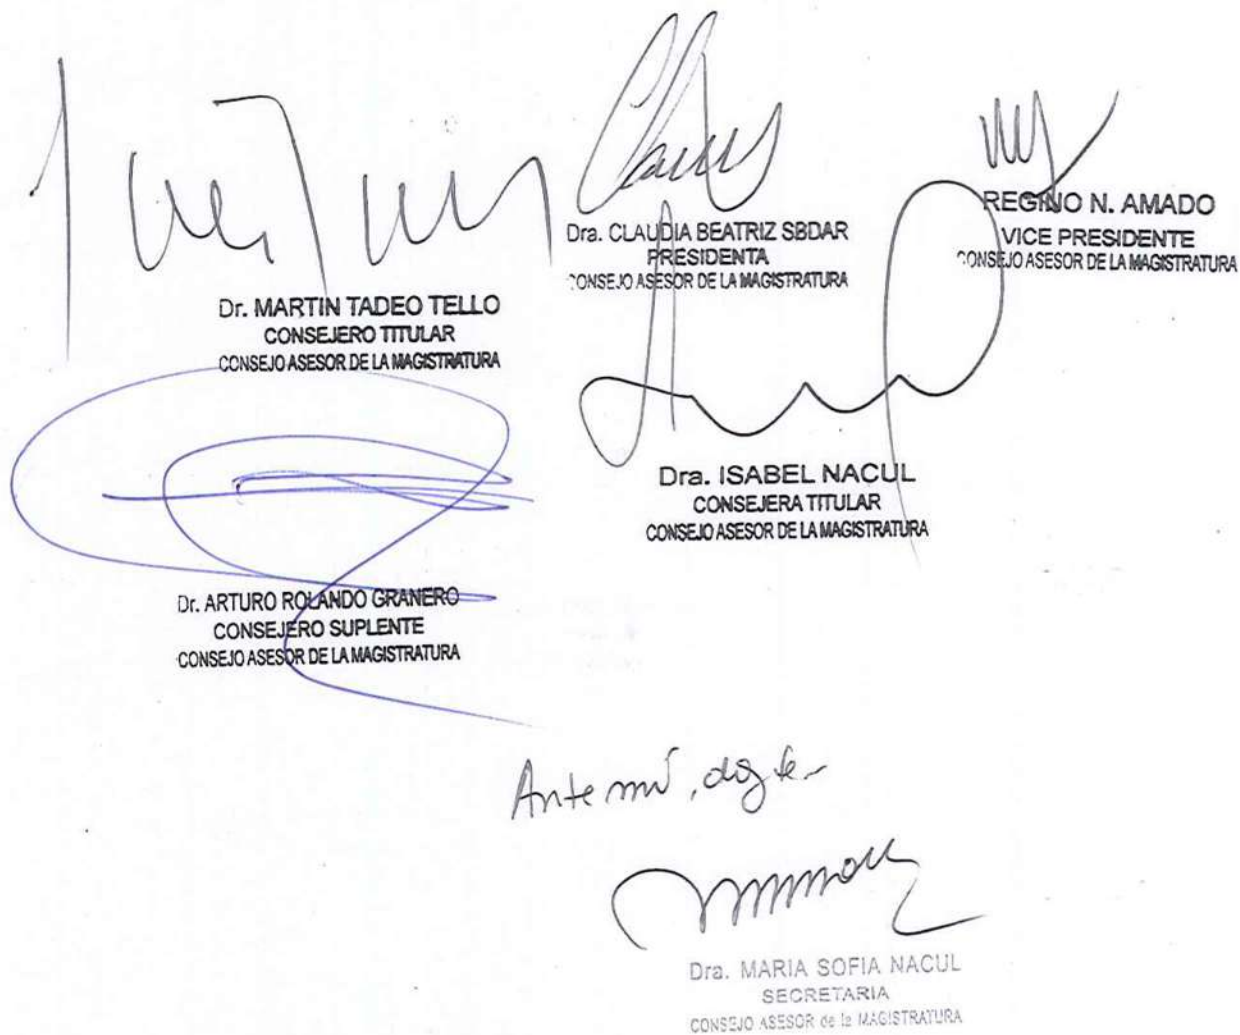 Dr. MARTIN TADEO TELLO
CONSEJERO TITULAR
CONSEJO ASESOR DE LA MAGISTRATURA
Dra. CLAUDIA BEATRIZ SBDAR
PRESIDENTA
CONSEJO ASESOR DE LA MAGISTRATURA
REGINO N. AMADO
VICE PRESIDENTE
CONSEJO ASESOR DE LA MAGISTRATURA
Dra. ISABEL NACUL
CONSEJERA TITULAR
CONSEJO ASESOR DE LA MAGISTRATURA
Dr. ARTURO ROLANDO GRANERO
CONSEJERO SUPLENTE
CONSEJO ASESOR DE LA MAGISTRATURA
Ante mí, doy fe
Dra. MARIA SOFIA NACUL
SECRETARIA
CONSEJO ASESOR de la MAGISTRATURA